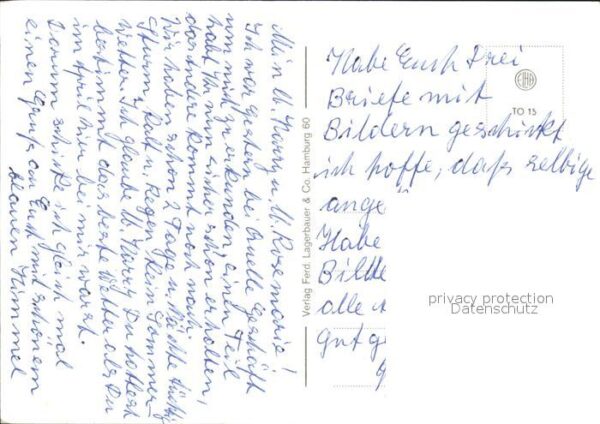 Mein lb. Harry u. lb. Rosemarie!
Ich war gestern bei Quelle Geschäft
um mich zu erkunden, einen Teil
habt Ihr nun sicher schon erhalten,
das andere kommt noch nach.
Wir haben schon 2 Tage u. Nächte
Sturm, kalt u. Regen, kein Sommer-
Wetter. Ich glaube lb. Harry Du hattest
bestimmt das beste Wetter als Du
im April hier bei mir warst.
Darum schicke ich gleich mal
einen Gruß an Euch mit schönem
blauen Himmel
Verlag Ferd. Lagerbauer & Co. Hamburg 60
Habe Euch Drei
Briefe mit
Bildern geschickt
ich hoffe, daß selbige
ange
Habe
Bilde
alle
gut g
TO 15
privacy protection
Datenschutz